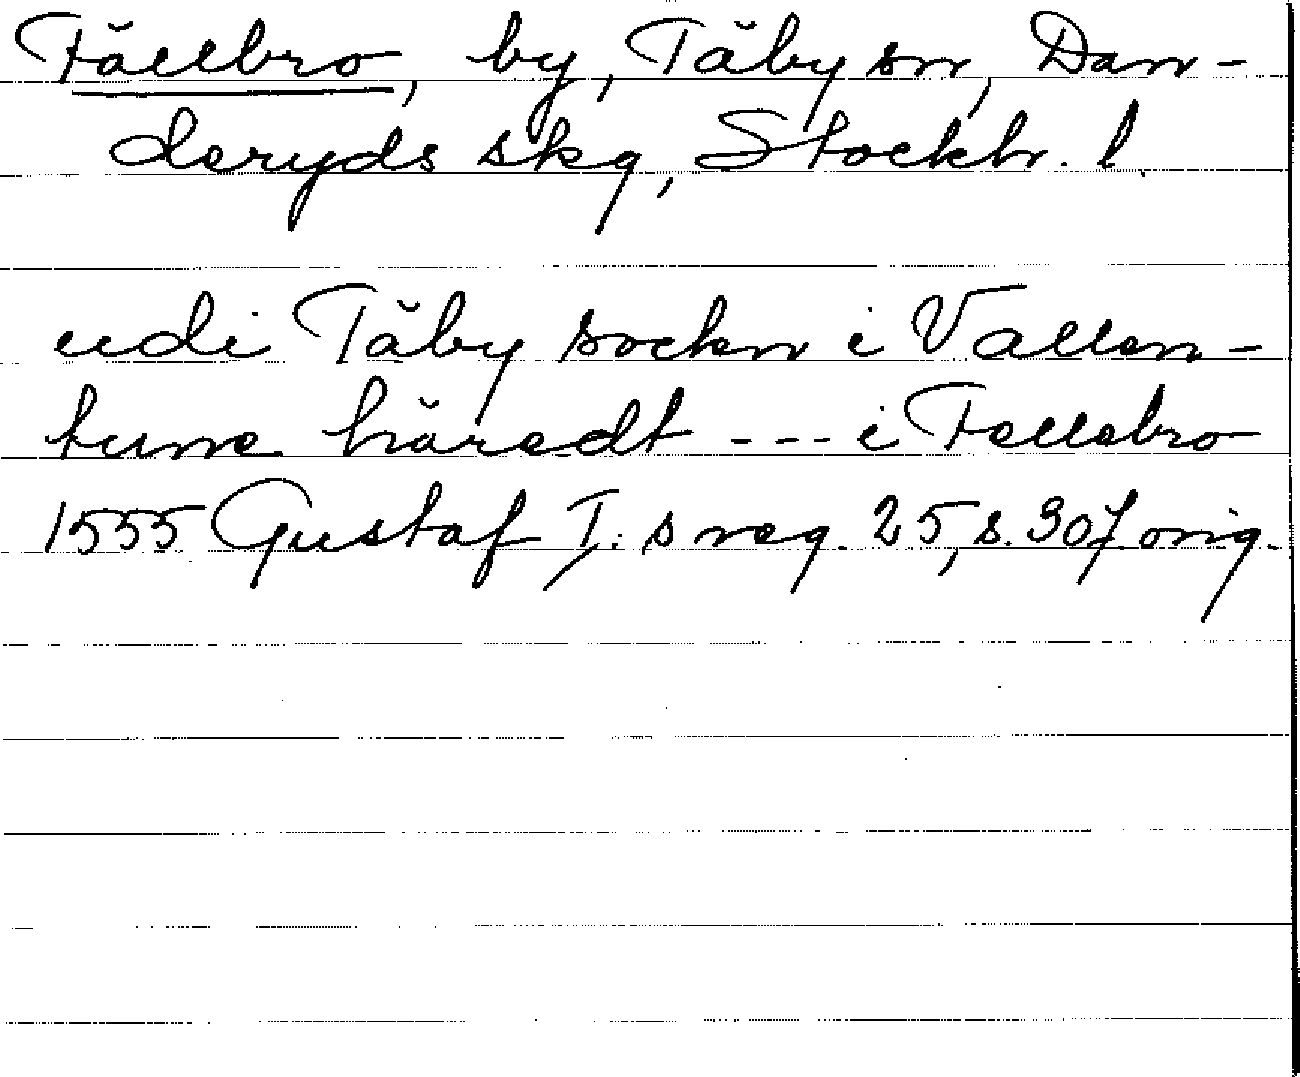 Fällbro, by, Täby sn, Dan-
deryds skg, Stockh. l.
udi Täby sockn i Vallen-
tune häredt --- i Fellebro
1555 Gustaf I:s reg. 25, s. 307 orig.